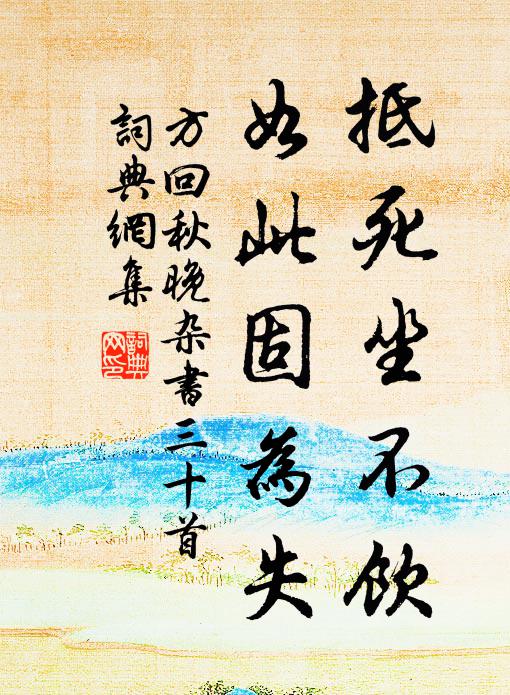 抵死坐不飲
如此固為失
方回秋晚杂書三十首
詞典網集
詞典網印